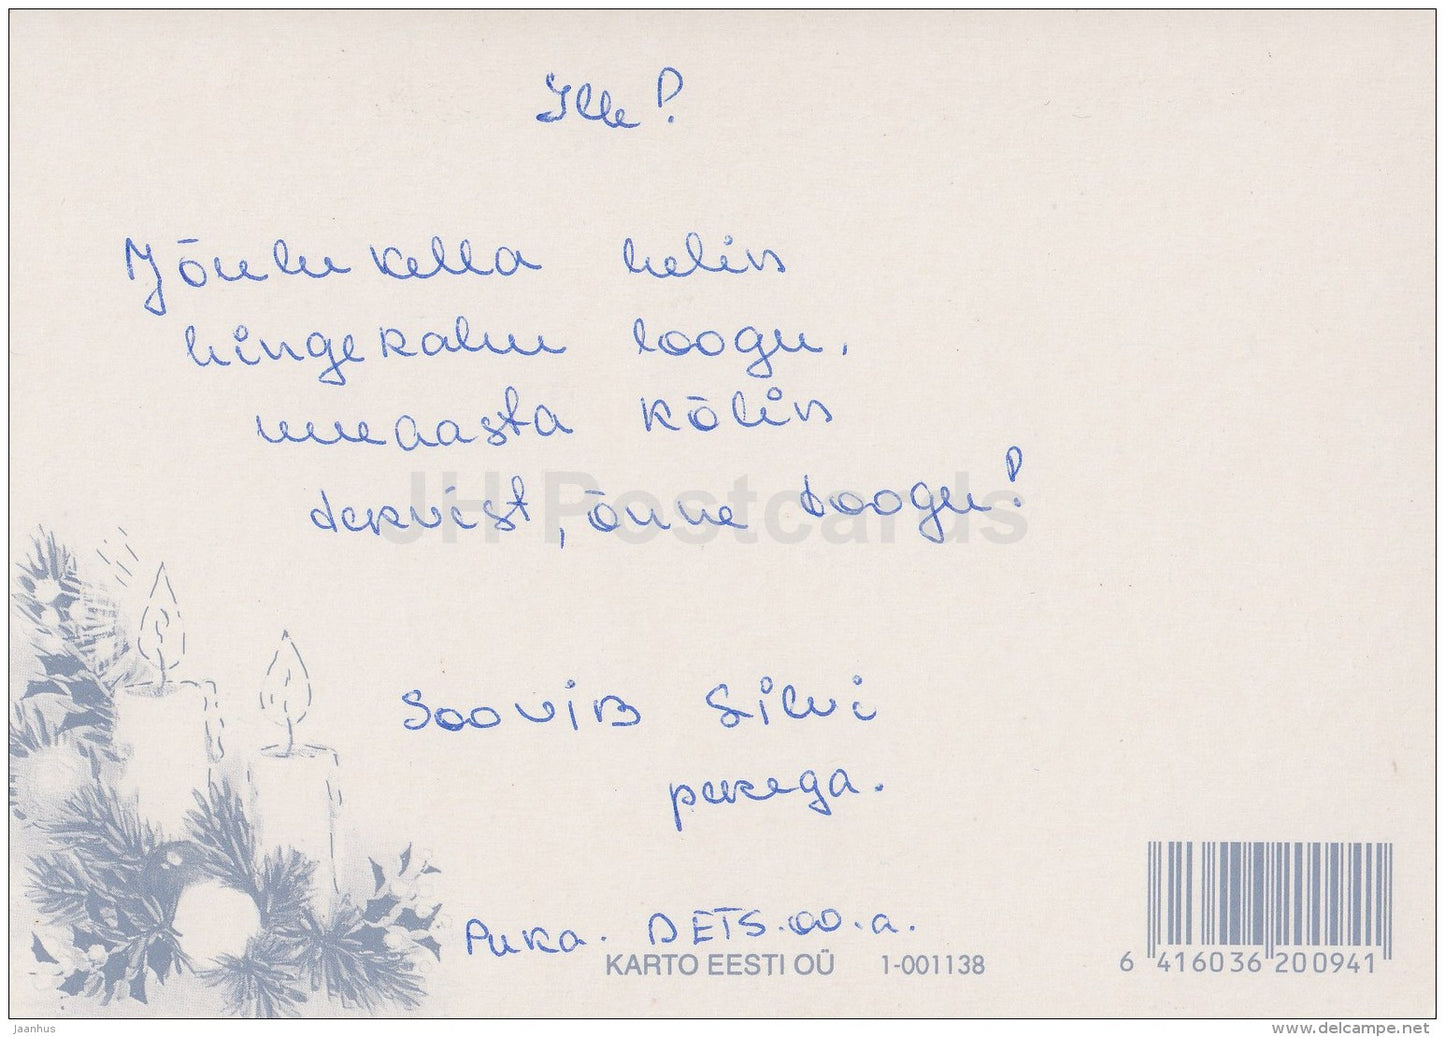 Ille!
Jõulukella helin
hingerahu loogu,
uueaasta kõlin
tervist, õnne toogu!
Soovib Silvi
perega.
Puka. DETS.00.a.
KARTO EESTI OÜ 1-001138
6 416036 200941
JH Postcards
jaanhus
www.delcampe.net